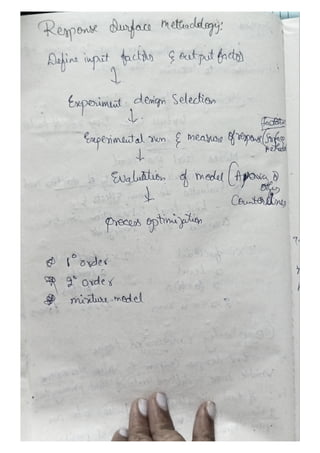 Response Surface Methodology:
Define input factors & output factors
↓
Experiment design Selection
↓
Experimental run & measure of response
↓
Evaluation of model (Anova &
Counter lines
↓
process optimization
1° order
2° order
mixture model